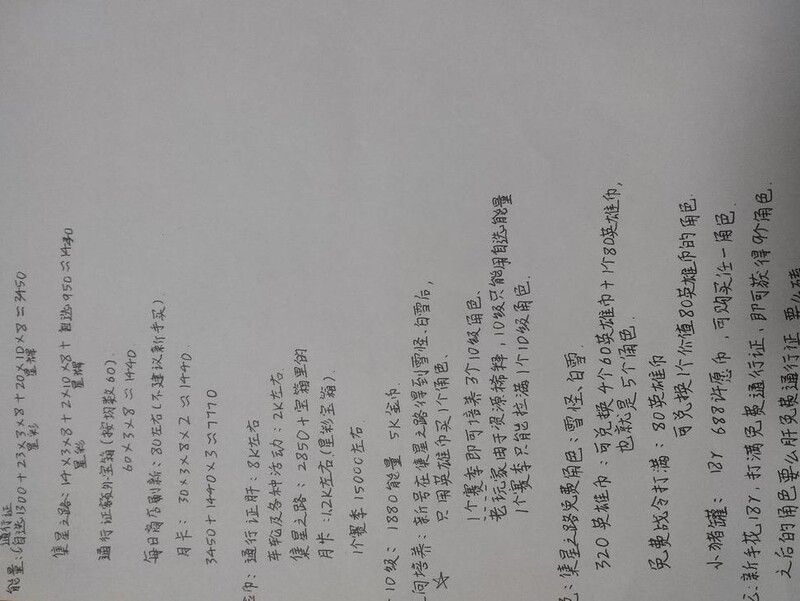 通行证
能量:(自选1300+23×3×8+20×10×8≈3450
星彩 星辉
集星之路:14×3×8+2×10×8+自选950≈1440
星彩 星辉
通行证额外宝箱(按均数60)
60×3×8≈1440
每日商店刷新:80左右(不建议新手买)
月卡: 30×3×8×2≈1440
3450+1440×3≈7770
币: 通行证肝:8K左右
车轮及各种活动:2K左右
集星之路:2850+宝箱里的
月卡:1.2K左右(星彩宝箱)
1个赛季15000左右
10级: 1880能量 5K金币
间培养:新号在集星之路得到雪怪、白雪后,
只用英雄币买1个角色.
☆
1个赛季即可培养3个10级角色、
老玩家由于资源稀释,10级只能用自选能量
1个赛季只能拉满1个10级角色.
:集星之路免费角色:雪怪、白雪
320英雄币:可兑换4个60英雄币+1个80英雄币,
也就是5个角色.
免费战令打满:80英雄币
可兑换1个价值80英雄币的角色.
小猪罐: 18r 688许愿币,可购买任一角色.
:新手花18r.打满免费通行证,即可获得9个角色.
之后的角色要么肝免费通行证,要么